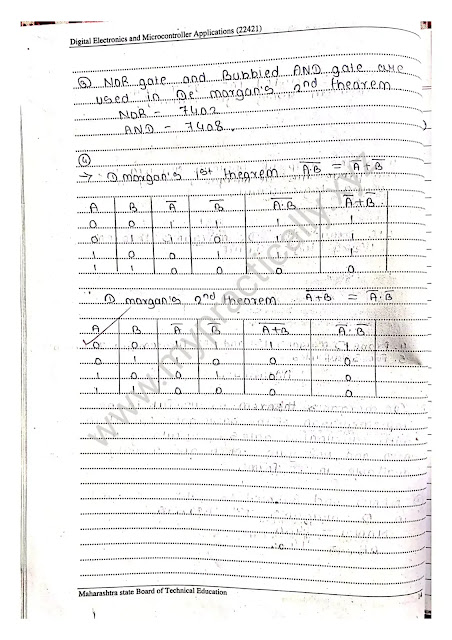 Digital Electronics and Microcontroller Applications (22421)
③ NOR gate and Bubbled AND gate are
used in De morgan's 2nd theorem
NOR - 7402
AND - 7408.
④
→ D morgan's 1st theorem A̅B̅ = A̅+B̅
A B A̅ B̅ A̅·B̅ A̅+B̅
0 0 1 1 1 1
0 1 1 0 1 1
1 0 0 1 1 1
1 1 0 0 0 0
D morgan's 2nd theorem A̅+̅B̅ = A̅·B̅
A B A̅ B̅ A+B A̅·B̅
0 0 1 1 1 1
0 1 1 0 0 0
1 0 0 1 0 0
1 1 0 0 0 0
www.mypractically.xyz
Maharashtra state Board of Technical Education